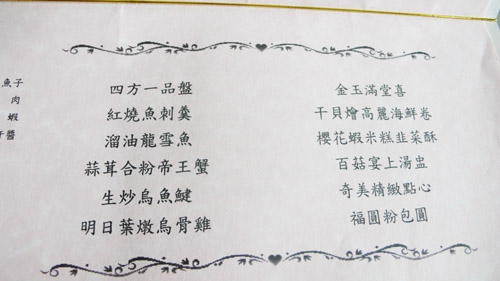 魚子
肉
蝦
醬
四方一品盤
紅燒魚刺羹
溜油龍雪魚
蒜茸合粉帝王蟹
生炒烏魚鰎
明日葉燉烏骨雞
金玉滿堂喜
干貝燴高麗海鮮卷
櫻花蝦米糕韭菜酥
百菇宴上湯盅
奇美精緻點心
福圓粉包圓